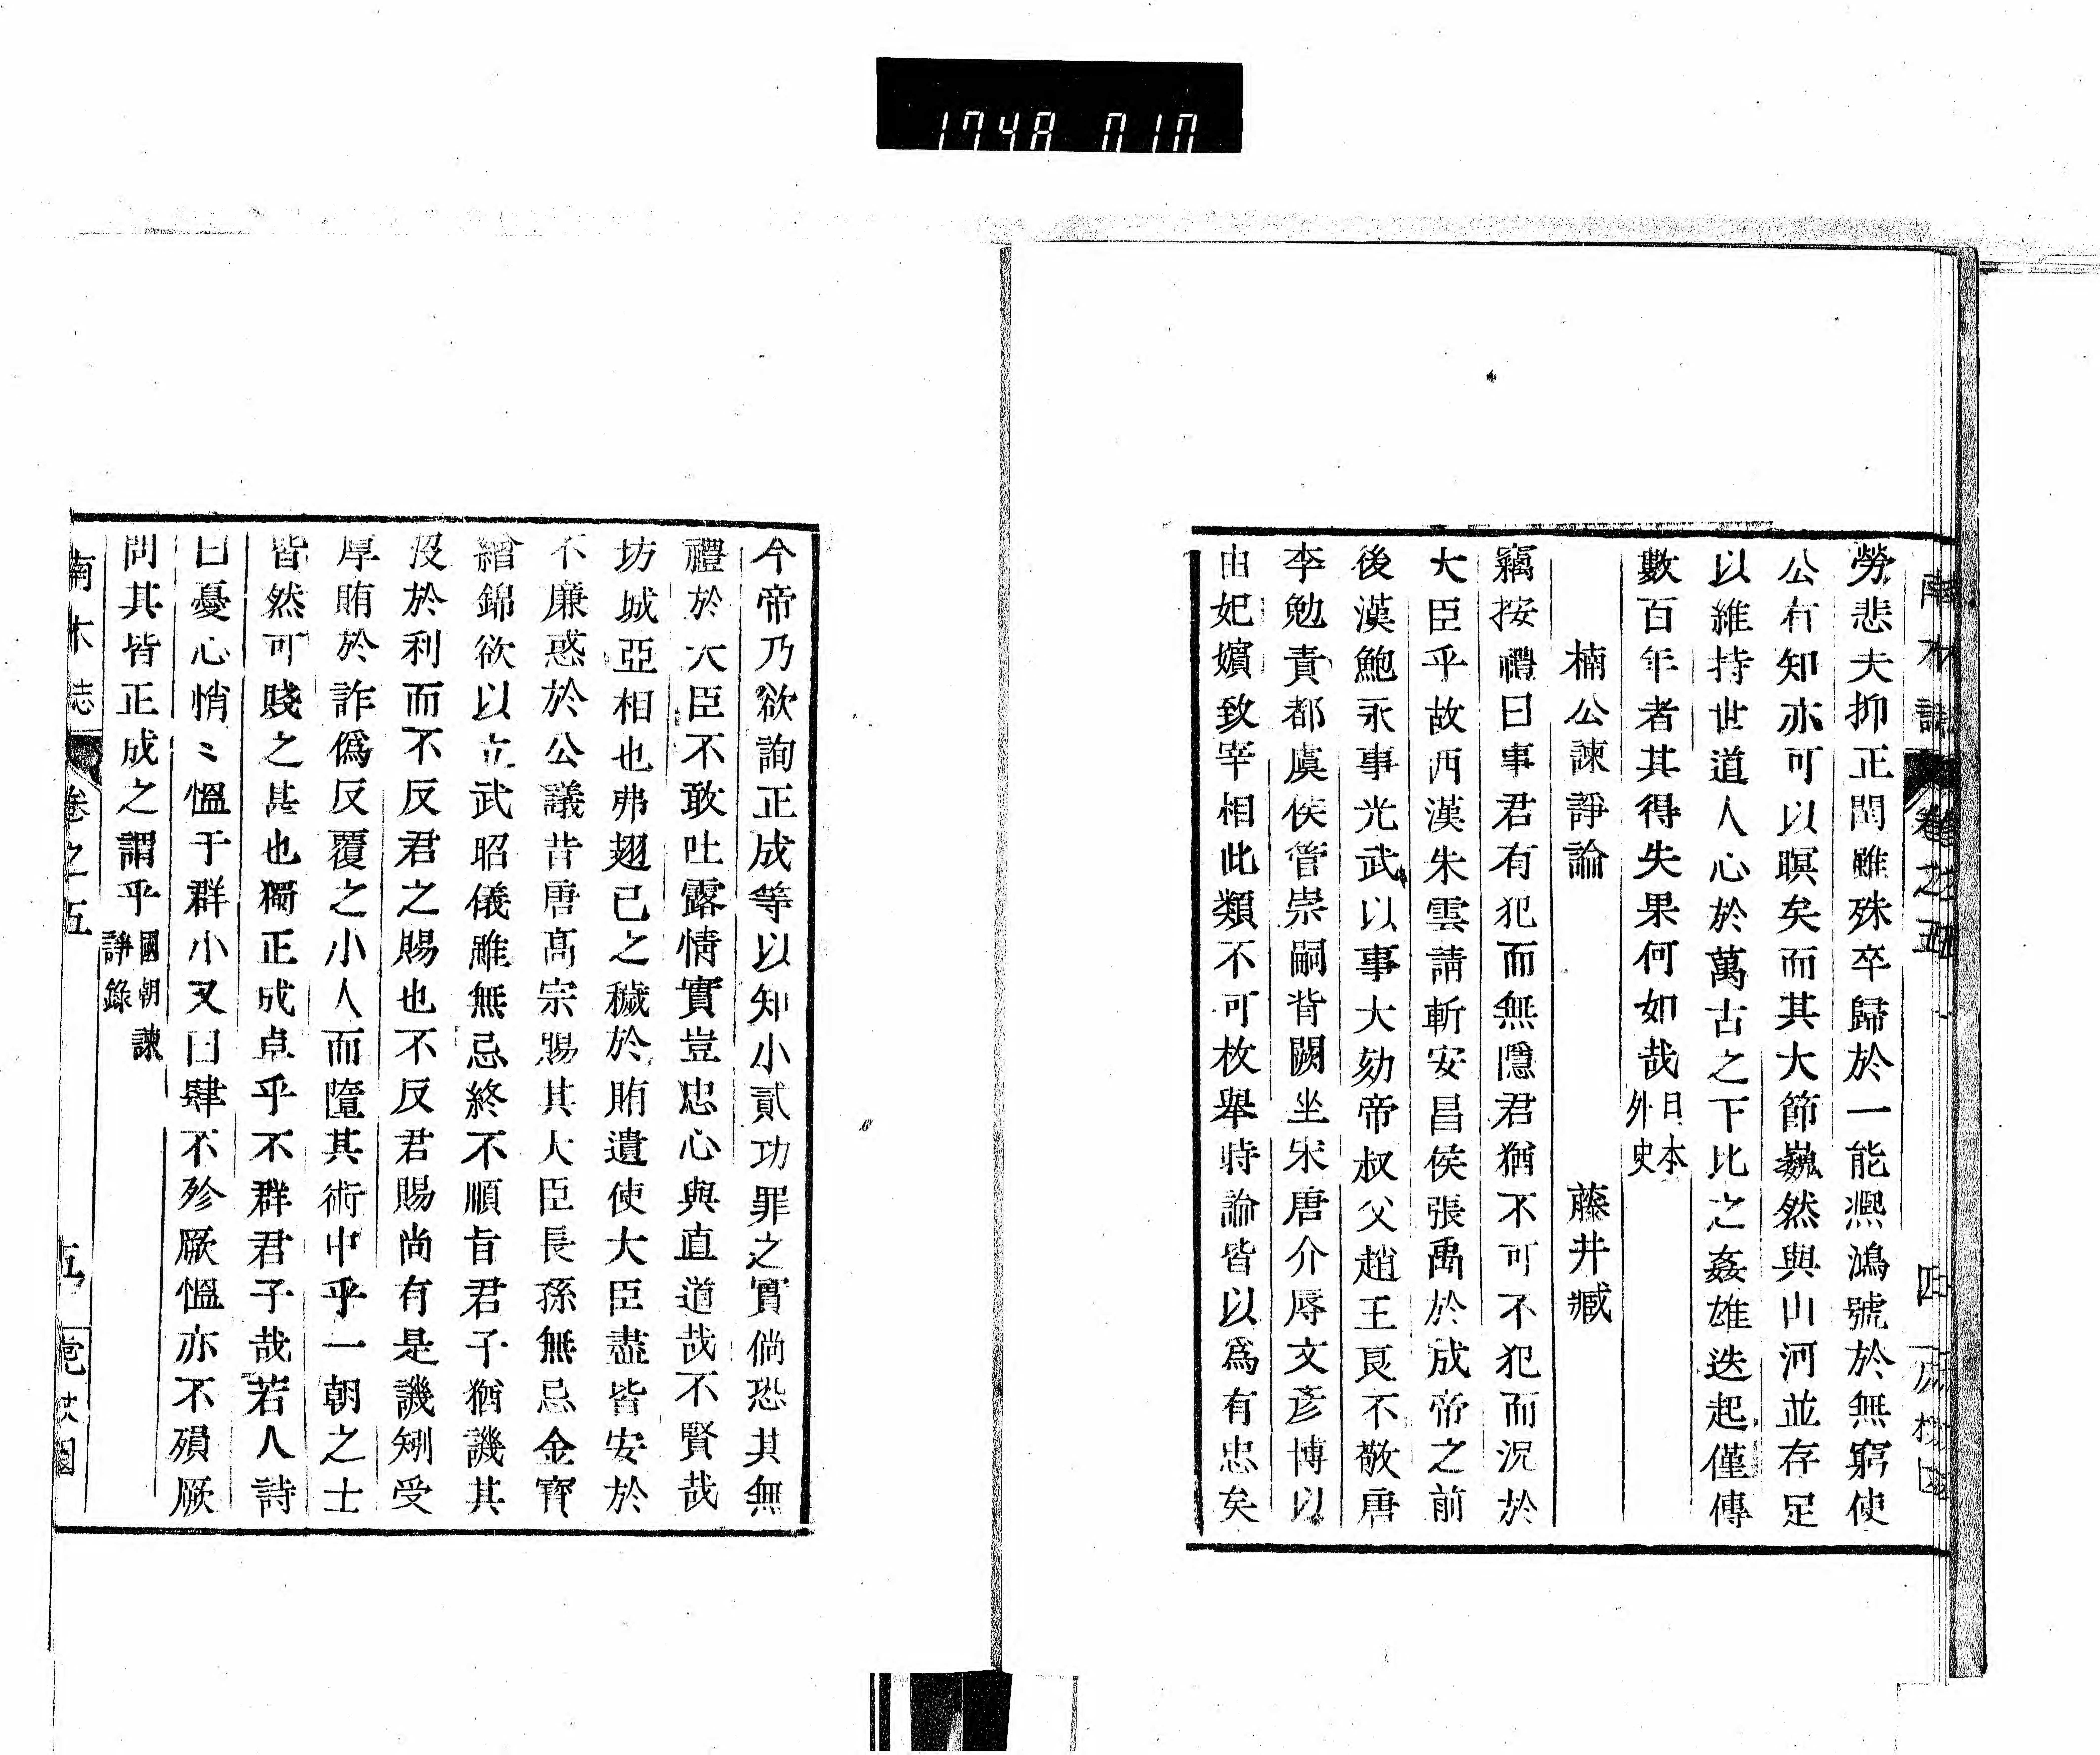 1748 010
南木誌 卷之五 四
勞悲夫抑正閏雖殊卒歸於一能濕鴻號於無窮使
公有知亦可以瞑矣而其大節巍然與山河並存足
以維持世道人心於萬古之下比之姦雄迭起僅傳
數百年者其得失果何如哉日本外史
楠公諫諍論 藤井臧
竊按禮曰事君有犯而無隱君猶不可不犯而況於
大臣乎故西漢朱雲請斬安昌侯張禹於成帝之前
後漢鮑永事光武以事大劾帝叔父趙王良不敬唐
李勉責都虞侯管崇嗣背闕坐宋唐介辱文彥博以
由妃嬪致宰相此類不可枚舉時論皆以爲有忠矣
今帝乃欲詢正成等以知小貳功罪之實倘恐其無
禮於大臣不敢吐露情實豈忠心與直道哉不賢哉
坊城亞相也弗翅已之穢於賄遺使大臣盡皆安於
不廉惑於公議昔唐高宗賜其大臣長孫無忌金寶
繒錦欲以立武昭儀雖無忌終不順旨君子猶譏其
沒於利而不反君之賜也不反君賜尚有是譏矧受
厚賄於詐僞反覆之小人而墮其術中乎一朝之士
皆然可賤之甚也獨正成卓乎不群君子哉若人詩
曰憂心悄〻慍于群小又曰肆不殄厥慍亦不殞厥
問其皆正成之謂乎國朝諫諍錄
南木誌 卷之五 五